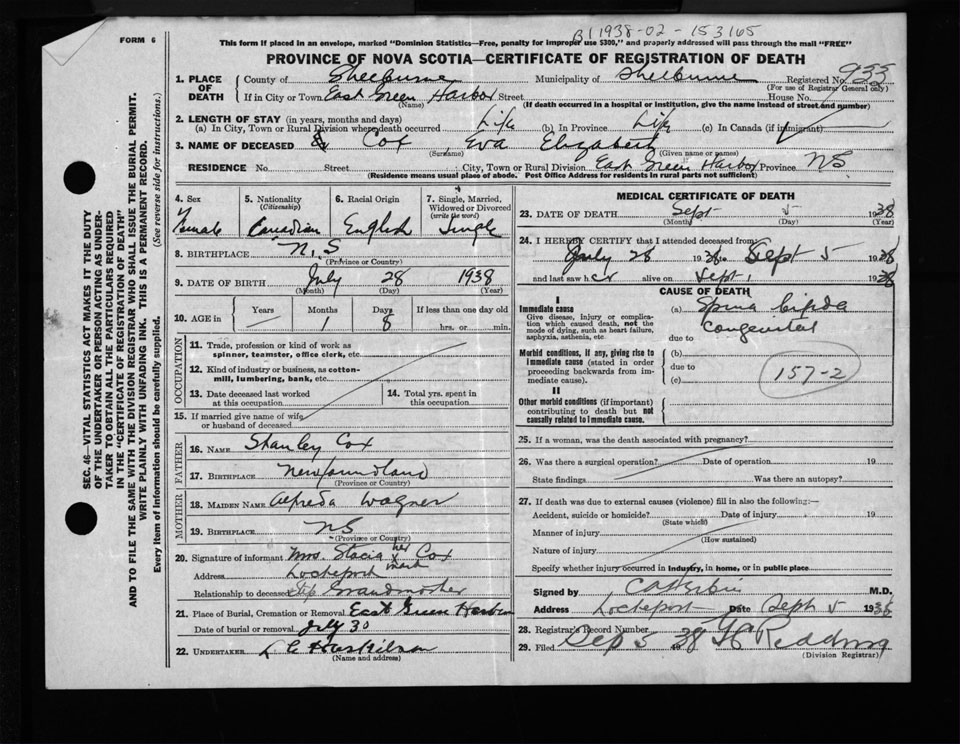 FORM 6
B 1938-02-153165
This form if placed in an envelope, marked "Dominion Statistics—Free, penalty for improper use $300," and properly addressed will pass through the mail "FREE"
PROVINCE OF NOVA SCOTIA—CERTIFICATE OF REGISTRATION OF DEATH
SEC. 46—VITAL STATISTICS ACT MAKES IT THE DUTY
OF THE UNDERTAKER OR PERSON ACTING AS UNDER-
TAKER TO OBTAIN ALL THE PARTICULARS REQUIRED
IN THE "CERTIFICATE OF REGISTRATION OF DEATH"
AND TO FILE THE SAME WITH THE DIVISION REGISTRAR WHO SHALL ISSUE THE BURIAL PERMIT.
WRITE PLAINLY WITH UNFADING INK. THIS IS A PERMANENT RECORD.
Every item of Information should be carefully supplied. (See reverse side for instructions.)
1. PLACE OF DEATH County of Shelburne Municipality of Shelburne Registered No. 933
(For use of Registrar General only)
If in City or Town East Green Harbor Street House No.
(Name) (If death occurred in a hospital or institution, give the name instead of street and number)
2. LENGTH OF STAY (in years, months and days)
(a) In City, Town or Rural Division where death occurred Life (b) In Province Life (c) In Canada (if immigrant)
3. NAME OF DECEASED Cox Eva Elizabeth
(Surname) (Given name or names)
RESIDENCE No. Street City, Town or Rural Division East Green Harbor Province NS.
(Residence means usual place of abode. Post Office Address for residents in rural parts not sufficient)
4. Sex 5. Nationality (Citizenship) 6. Racial Origin 7. Single, Married, Widowed or Divorced (write the word)
Female Canadian English Single
8. BIRTHPLACE N.S
(Province or Country)
9. DATE OF BIRTH July 28 1938
(Month) (Day) (Year)
10. AGE in Years Months Days If less than one day old
1 8 hrs. or min.
OCCUPATION
11. Trade, profession or kind of work as
spinner, teamster, office clerk, etc.
12. Kind of industry or business, as cotton-
mill, lumbering, bank, etc.
13. Date deceased last worked
at this occupation
14. Total yrs. spent in
this occupation
15. If married give name of wife
or husband of deceased
FATHER
16. NAME Stanley Cox
17. BIRTHPLACE Newfoundland
(Province or Country)
MOTHER
18. MAIDEN NAME Alfreda Wagner
19. BIRTHPLACE NS
(Province or Country)
20. Signature of informant Mrs. Stacia her X mark Cox
Address Lockeport
Relationship to deceased Step Grandmother
21. Place of Burial, Cremation or Removal East Green Harbor
Date of burial or removal July 30
22. UNDERTAKER
(Name and address)
MEDICAL CERTIFICATE OF DEATH
23. DATE OF DEATH Sept 5 1938
(Month) (Day) (Year)
24. I HEREBY CERTIFY that I attended deceased from
July 28 1938 to Sept 5 1938
and last saw her alive on Sept 1 1938
CAUSE OF DEATH
I
Immediate cause
Give disease, injury or complica-
tion which caused death, not the
mode of dying, such as heart failure,
asphyxia, asthenia, etc.
(a) Spina bifida
congenital
due to
Morbid conditions, if any, giving rise to
immediate cause (stated in order
proceeding backwards from im-
mediate cause).
(b)
due to
(c)
157-2
II
Other morbid conditions (if important)
contributing to death but not
causally related to immediate cause.
25. If a woman, was the death associated with pregnancy?
26. Was there a surgical operation? Date of operation 19
State findings Was there an autopsy?
27. If death was due to external causes (violence) fill in also the following:—
Accident, suicide or homicide? Date of injury 19
(State which)
Manner of injury
(How sustained)
Nature of injury
Specify whether injury occurred in industry, in home, or in public place
Signed by M.D.
Address Lockeport Date Sept 5 1938
28. Registrar's Record Number
29. Filed Sep 5 1938 Redding
(Division Registrar)